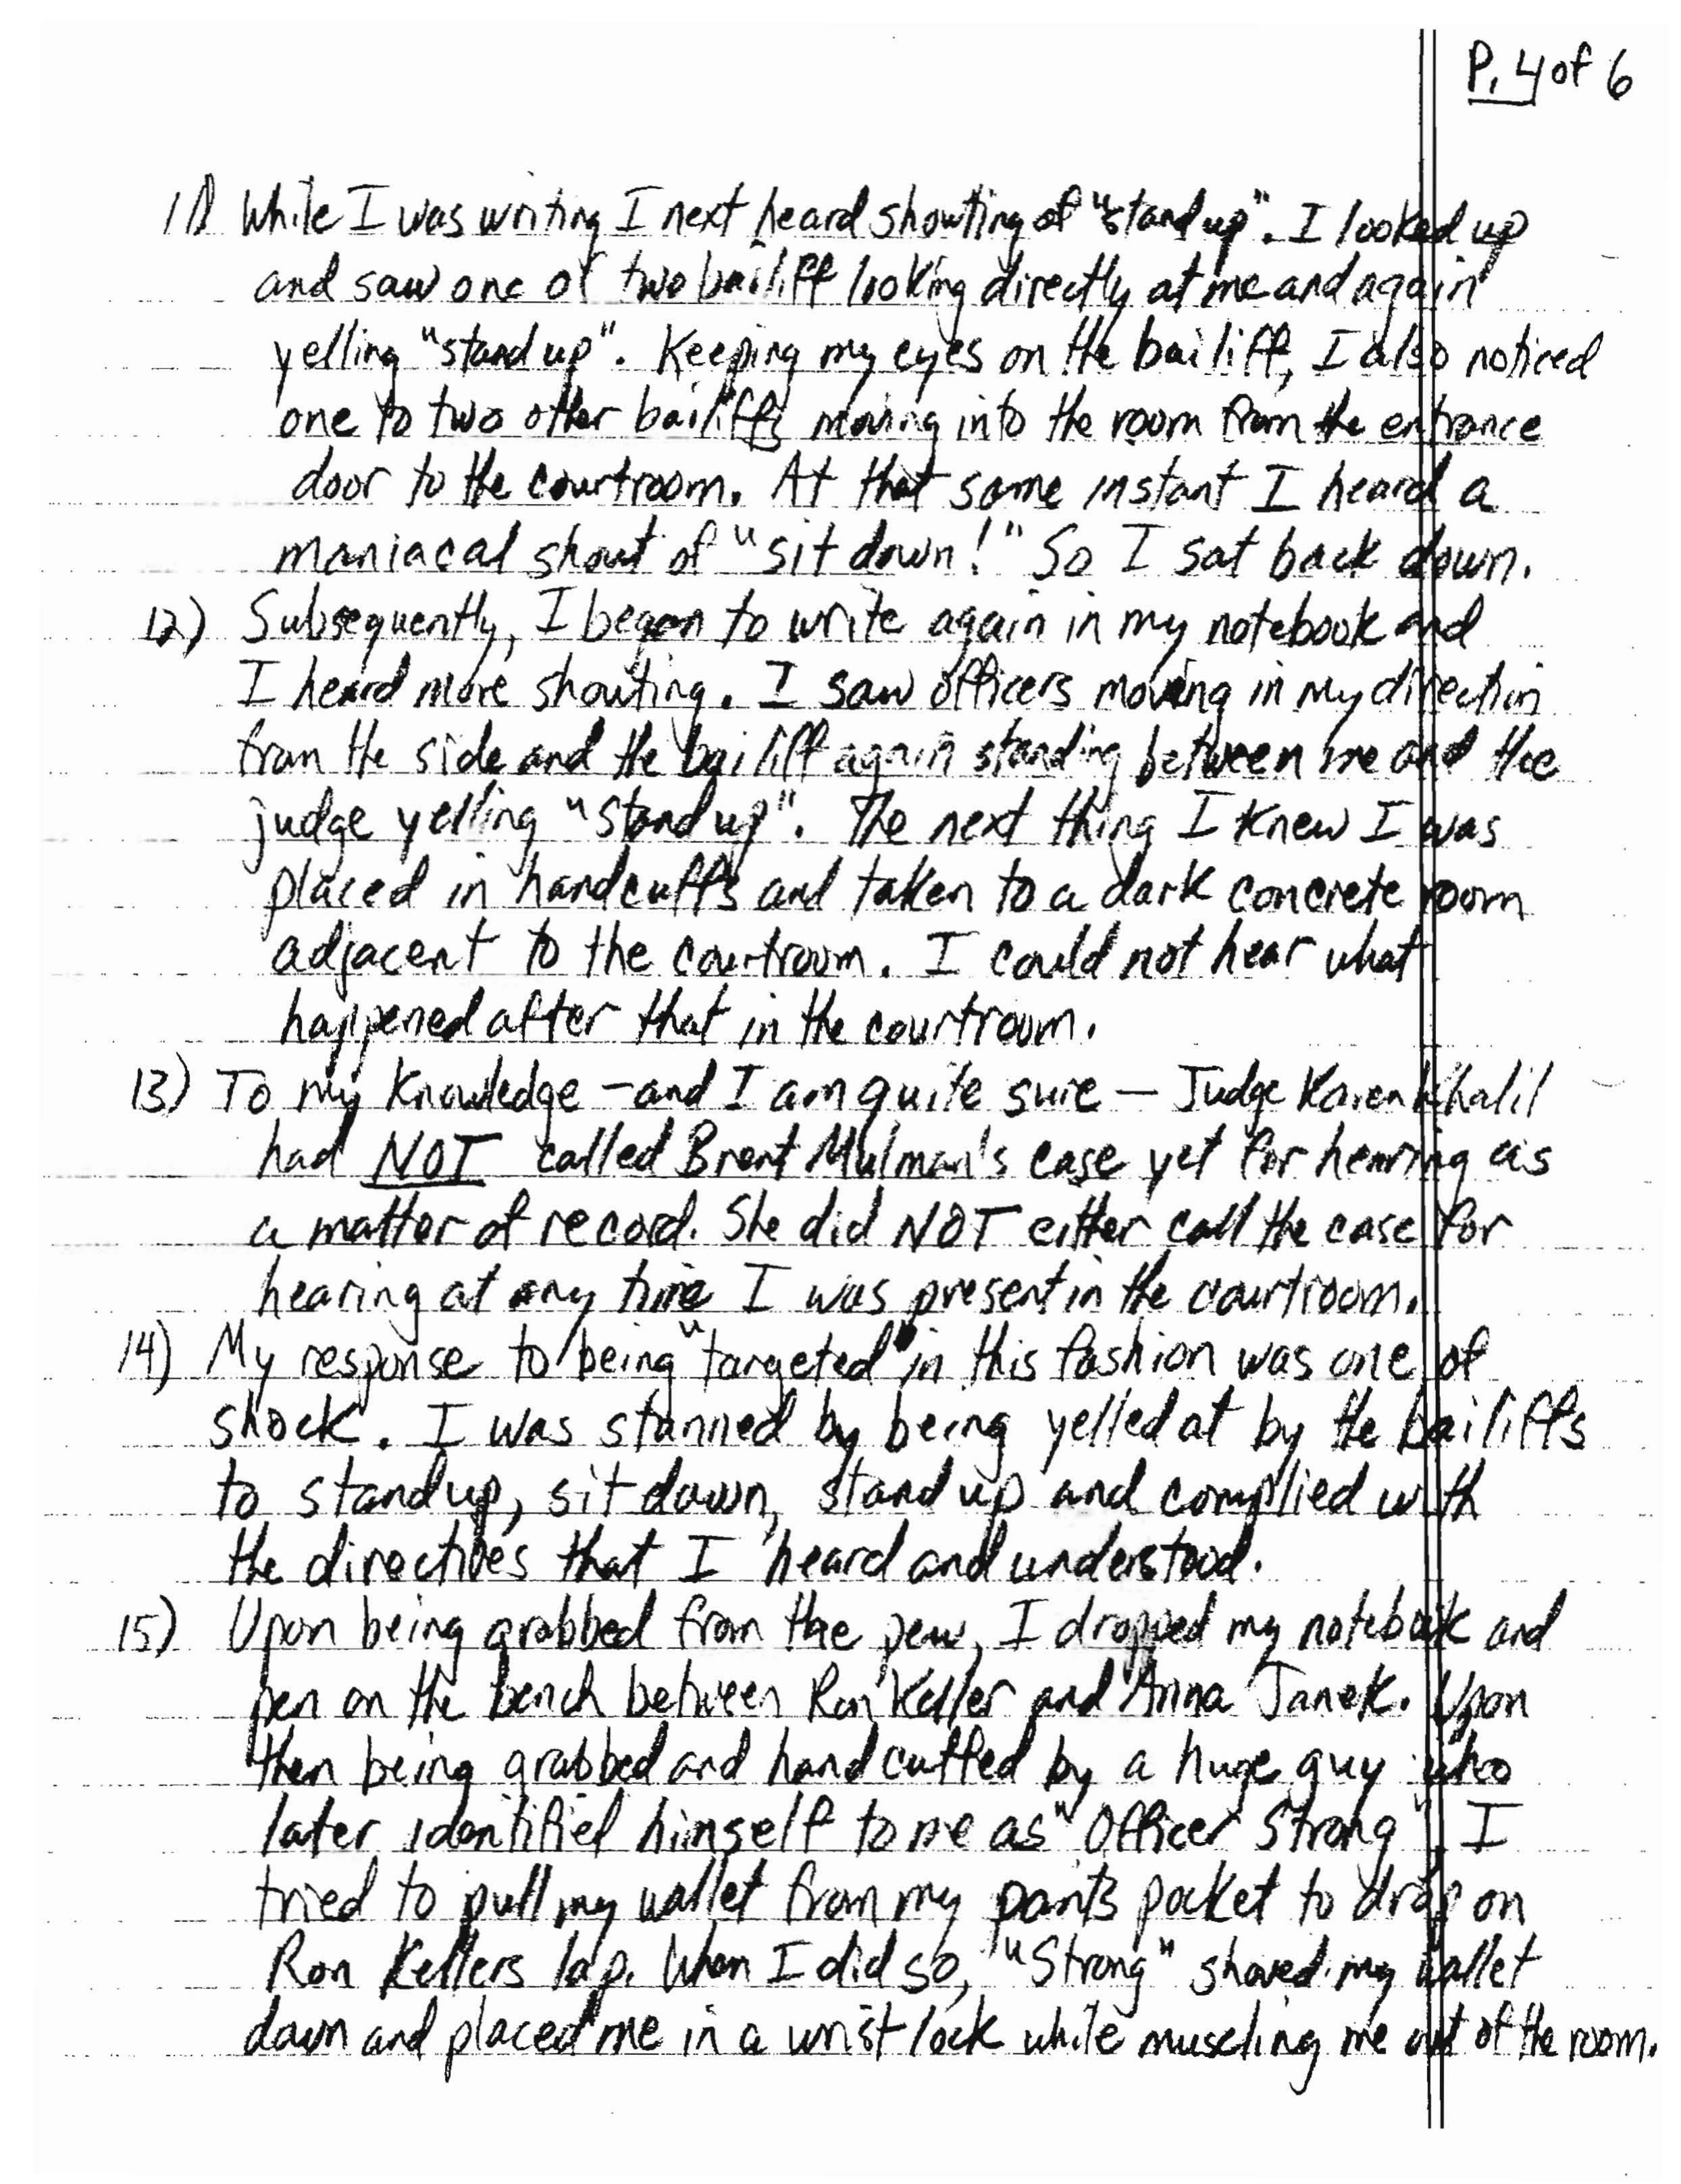 P. 4 of 6
11) While I was writing I next heard shouting of "stand up". I looked up
and saw one of two bailiff looking directly at me and again
yelling "stand up". Keeping my eyes on the bailiff, I also noticed
one to two other bailiffs moving into the room from the entrance
door to the courtroom. At that same instant I heard a
maniacal shout of "sit down!" So I sat back down.
12) Subsequently, I began to write again in my notebook and
I heard more shouting. I saw officers moving in my direction
from the side and the bailiff again standing between me and the
judge yelling "stand up". The next thing I knew I was
placed in handcuffs and taken to a dark concrete room
adjacent to the courtroom. I could not hear what
happened after that in the courtroom.
13) To my knowledge – and I am quite sure – Judge Karen Khalil
had NOT called Brent Mulman's case yet for hearing as
a matter of record. She did NOT either call the case for
hearing at any time I was present in the courtroom.
14) My response to being "targeted" in this fashion was one of
shock. I was stunned by being yelled at by the bailiffs
to stand up, sit down, stand up and complied with
the directives that I heard and understood.
15) Upon being grabbed from the pew, I dropped my notebook and
pen on the bench between Ron Keller and Anna Janek. Upon
then being grabbed and handcuffed by a huge guy who
later identified himself to me as "Officer Strong", I
tried to pull my wallet from my pants pocket to drop on
Ron Kellers lap. When I did so, "Strong" shoved my wallet
down and placed me in a wrist lock while muscling me out of the room.